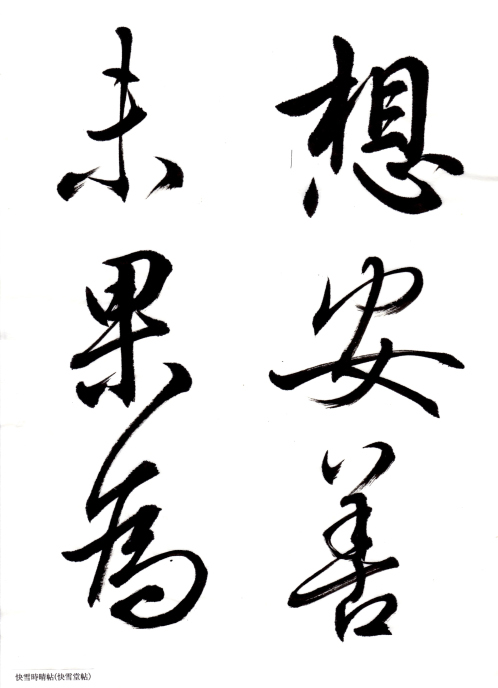 想安善
未果為
快雪時晴帖(快雪堂帖)